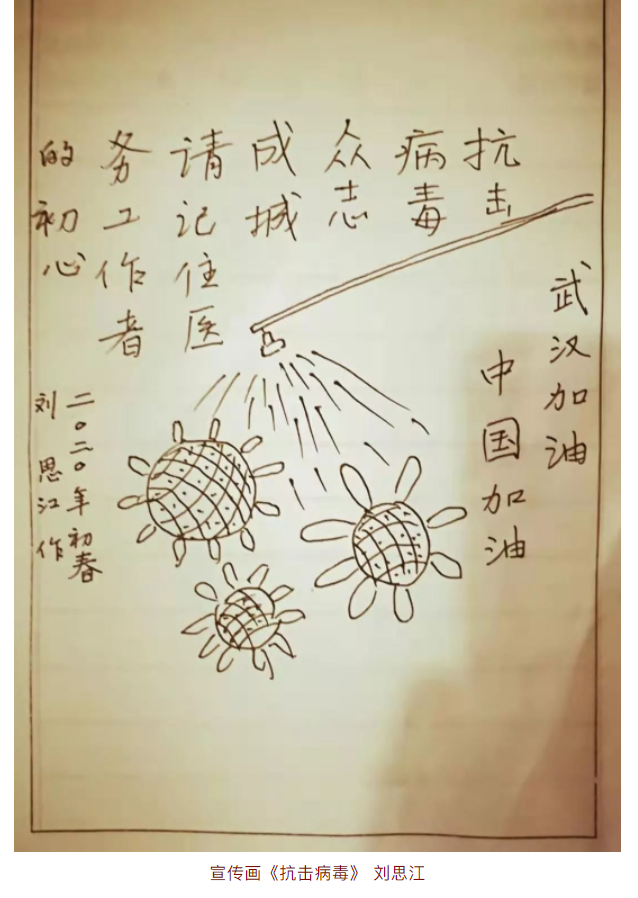 抗击
病毒
众志
成城
请记住医
务工作者
的初心
武汉加油
中国加油
二〇二〇年初春
刘思江作
宣传画《抗击病毒》 刘思江